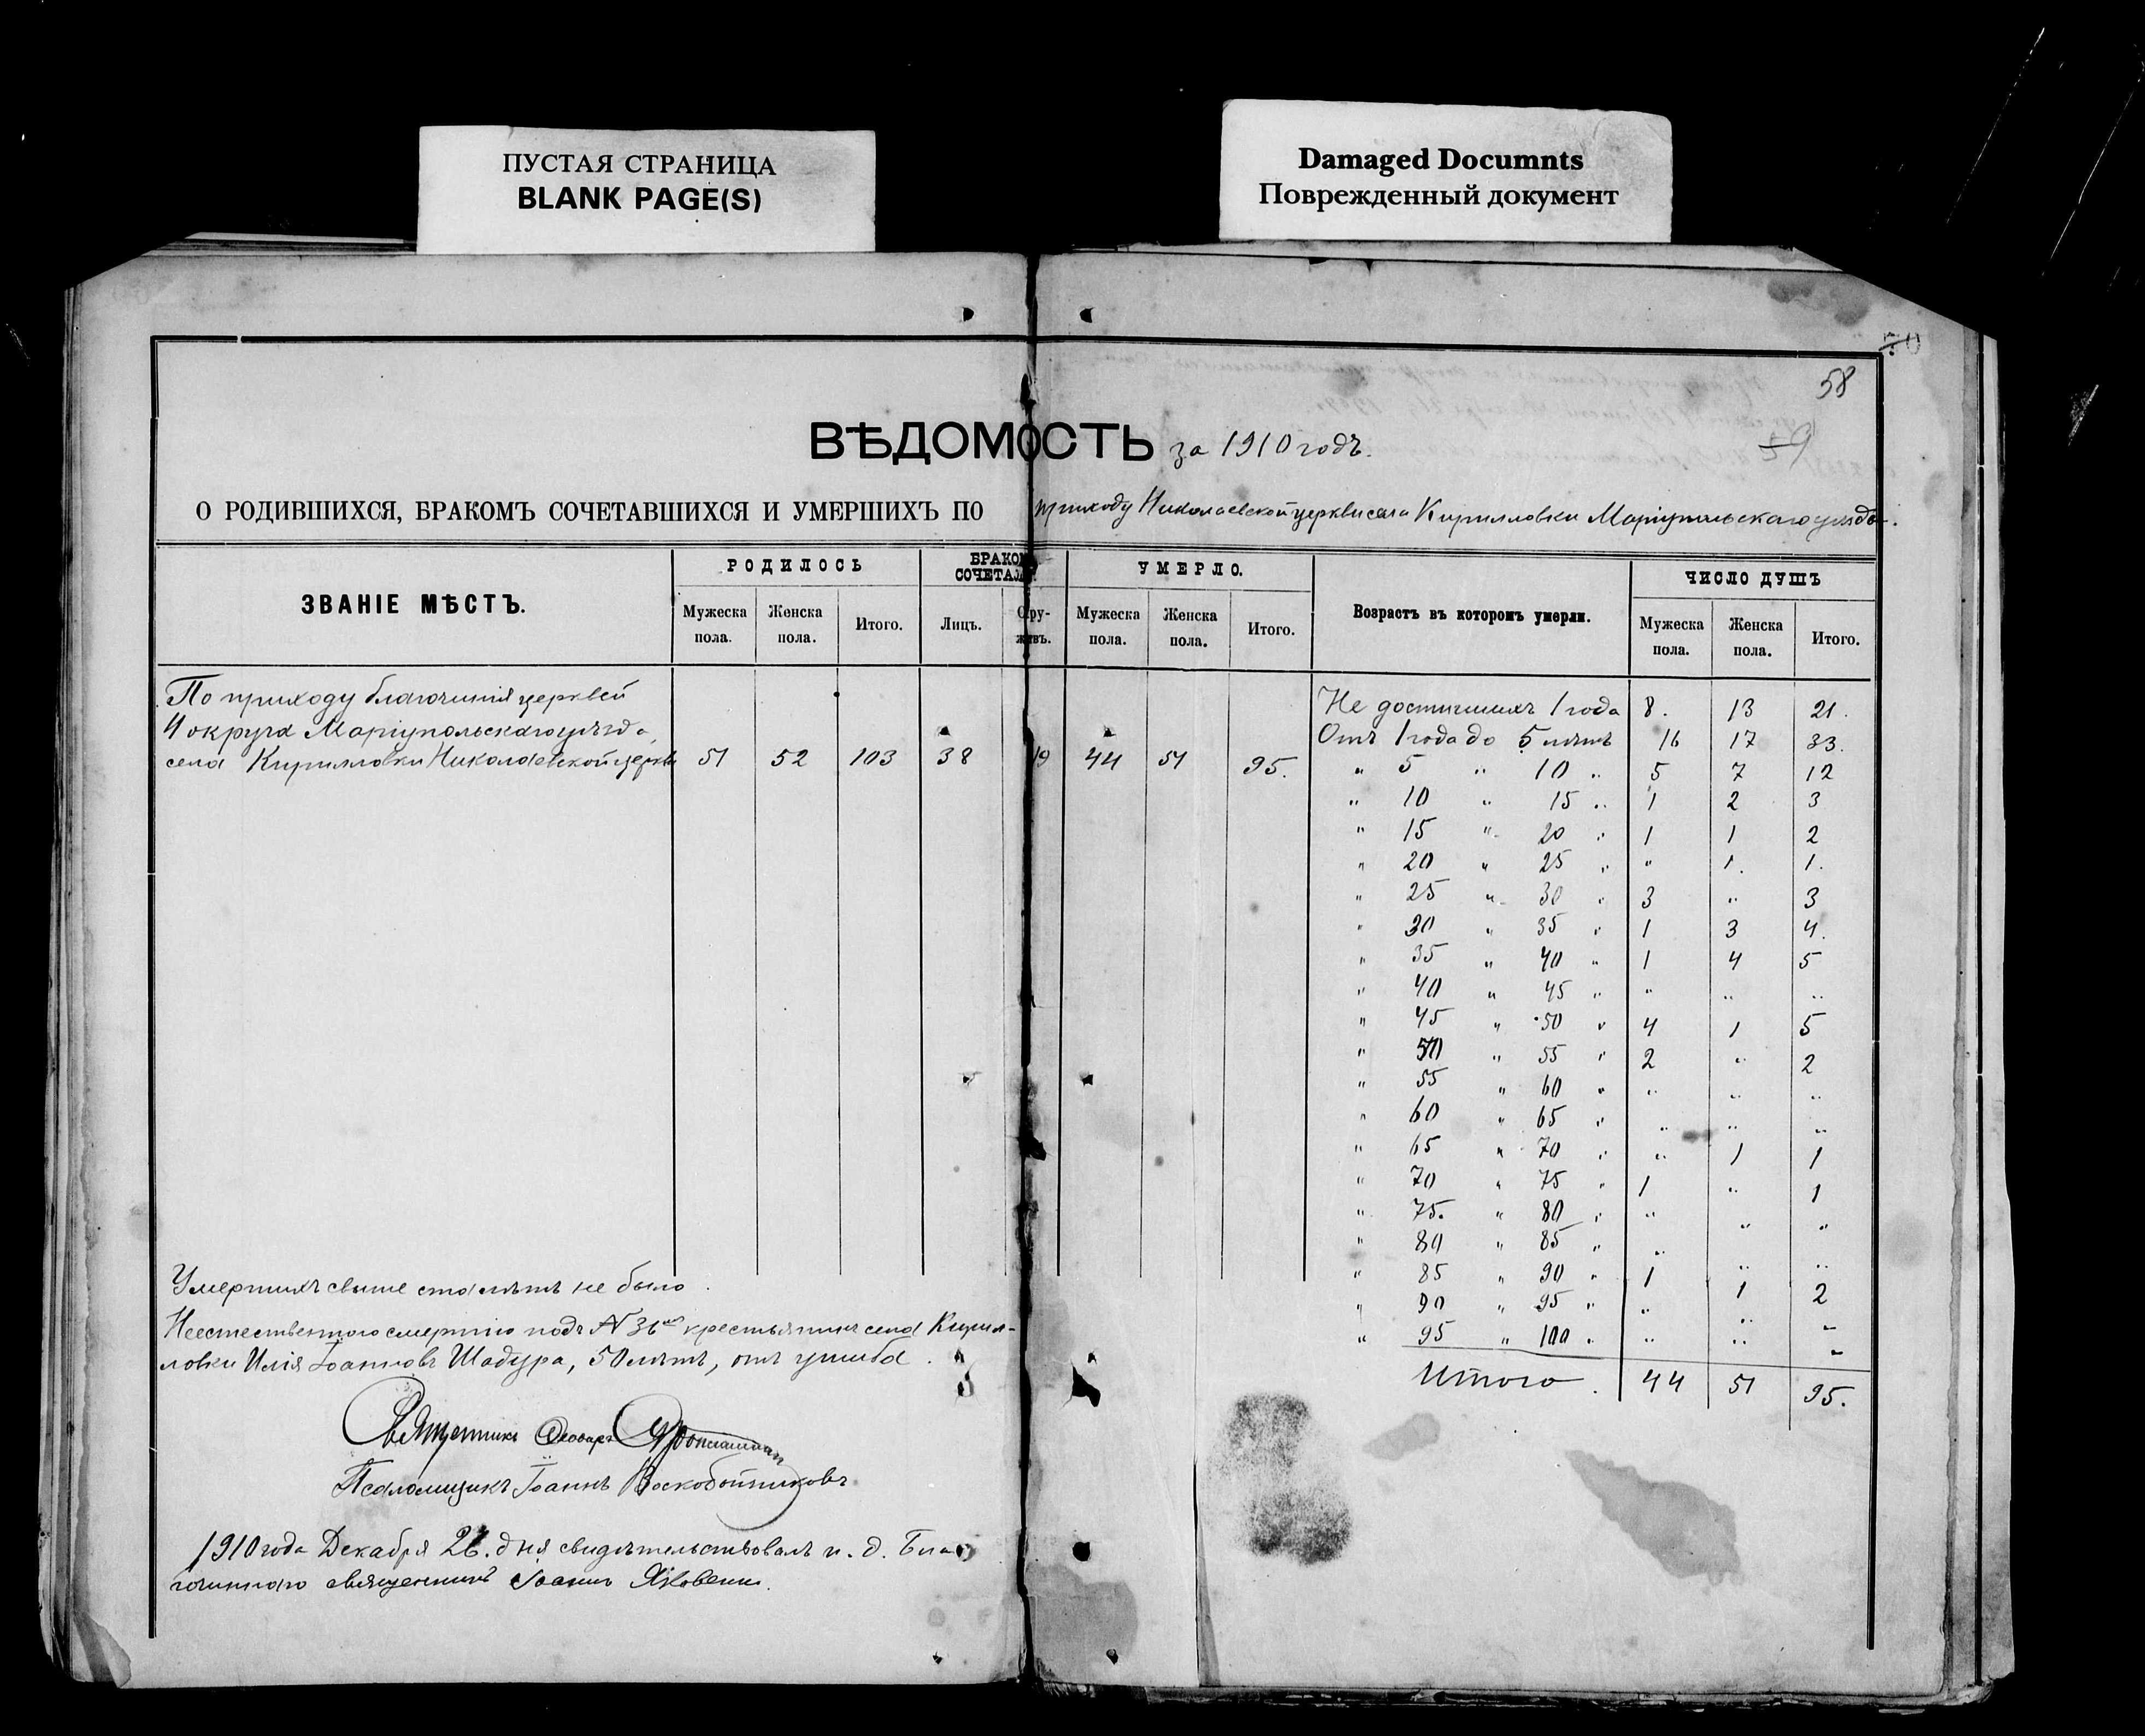 ПУСТАЯ СТРАНИЦА
BLANK PAGE(S)
Damaged Documnts
Поврежденный документ
58
59
ВѢДОМОСТЬ за 1910 годъ.
О РОДИВШИХСЯ, БРАКОМЪ СОЧЕТАВШИХСЯ И УМЕРШИХЪ ПО приходу Николаевской церкви села Кирилловки Маріупольскаго уѣзда.
ЗВАНІЕ МѢСТЪ.
РОДИЛОСЬ
Мужеска пола.
Женска пола.
Итого.
БРАКОМ СОЧЕТАЛ.
Лицъ.
УМЕРЛО.
Мужеска пола.
Женска пола.
Итого.
Возрастъ въ которомъ умерли.
ЧИСЛО ДУШЪ
Мужеска пола.
Женска пола.
Итого.
По приходу благочинія церквей
4 округа Маріупольскаго уѣзда,
села Кирилловки Николаевской церкви 51 52 103 38 19 44 51 95.
Не достигшихъ 1 года 8. 13 21.
Отъ 1 года до 5 лѣтъ 16 17 33.
" 5 " 10 " 5 7 12
" 10 " 15 " 1 2 3
" 15 " 20 " 1 1 2
" 20 " 25 " " 1. 1.
" 25 " 30 " 3 " 3
" 30 " 35 " 1 3 4.
" 35 " 40 " 1 4 5
" 40 " 45 " " " "
" 45 " 50 " 4 1 5
" 50 " 55 " 2 " 2
" 55 " 60 " " " "
" 60 " 65 " " " "
" 65 " 70 " " 1 1
" 70 " 75 " 1 " 1
" 75. " 80 " " " "
" 80 " 85 " " " "
" 85 " 90 " 1 1 2
" 90 " 95 " " " "
" 95 " 100 " " " "
Итого. 44 51 95.
Умершихъ свыше ста лѣтъ не было.
Неестественною смертію подъ № 36 крестьянинъ села Кирил-
ловки Илія Іоанновъ Шадура, 50 лѣтъ, отъ ушиба.
Священникъ Ѳеодоръ
Псаломщикъ Іоаннъ Воскобойниковъ
1910 года Декабря 26. дня свидѣтельствовалъ и. д. Бла-
гочиннаго священникъ Іоаннъ Яковенко.